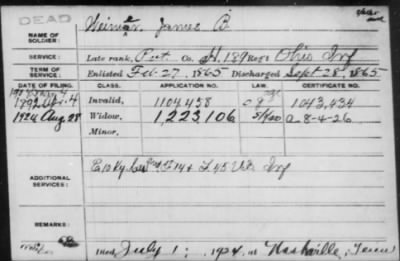 DEAD
NAME OF SOLDIER: James B.
SERVICE: Late rank, Pvt Co. H. 189 Reg't Ohio Inf
TERM OF SERVICE: Enlisted Feb. 27, 1865 Discharged Sept 28, 1865
DATE OF FILING. CLASS. APPLICATION NO. CERTIFICATE NO.
4 Invalid, 1104,458 1043,434
1924 Aug 28 Widow, 1,223,106 a 8-4-26
Minor,
ADDITIONAL SERVICES: E 10 Ky F 14 & I 45 Inf
REMARKS:
Died July 1, 1924, at Nashville, Tenn